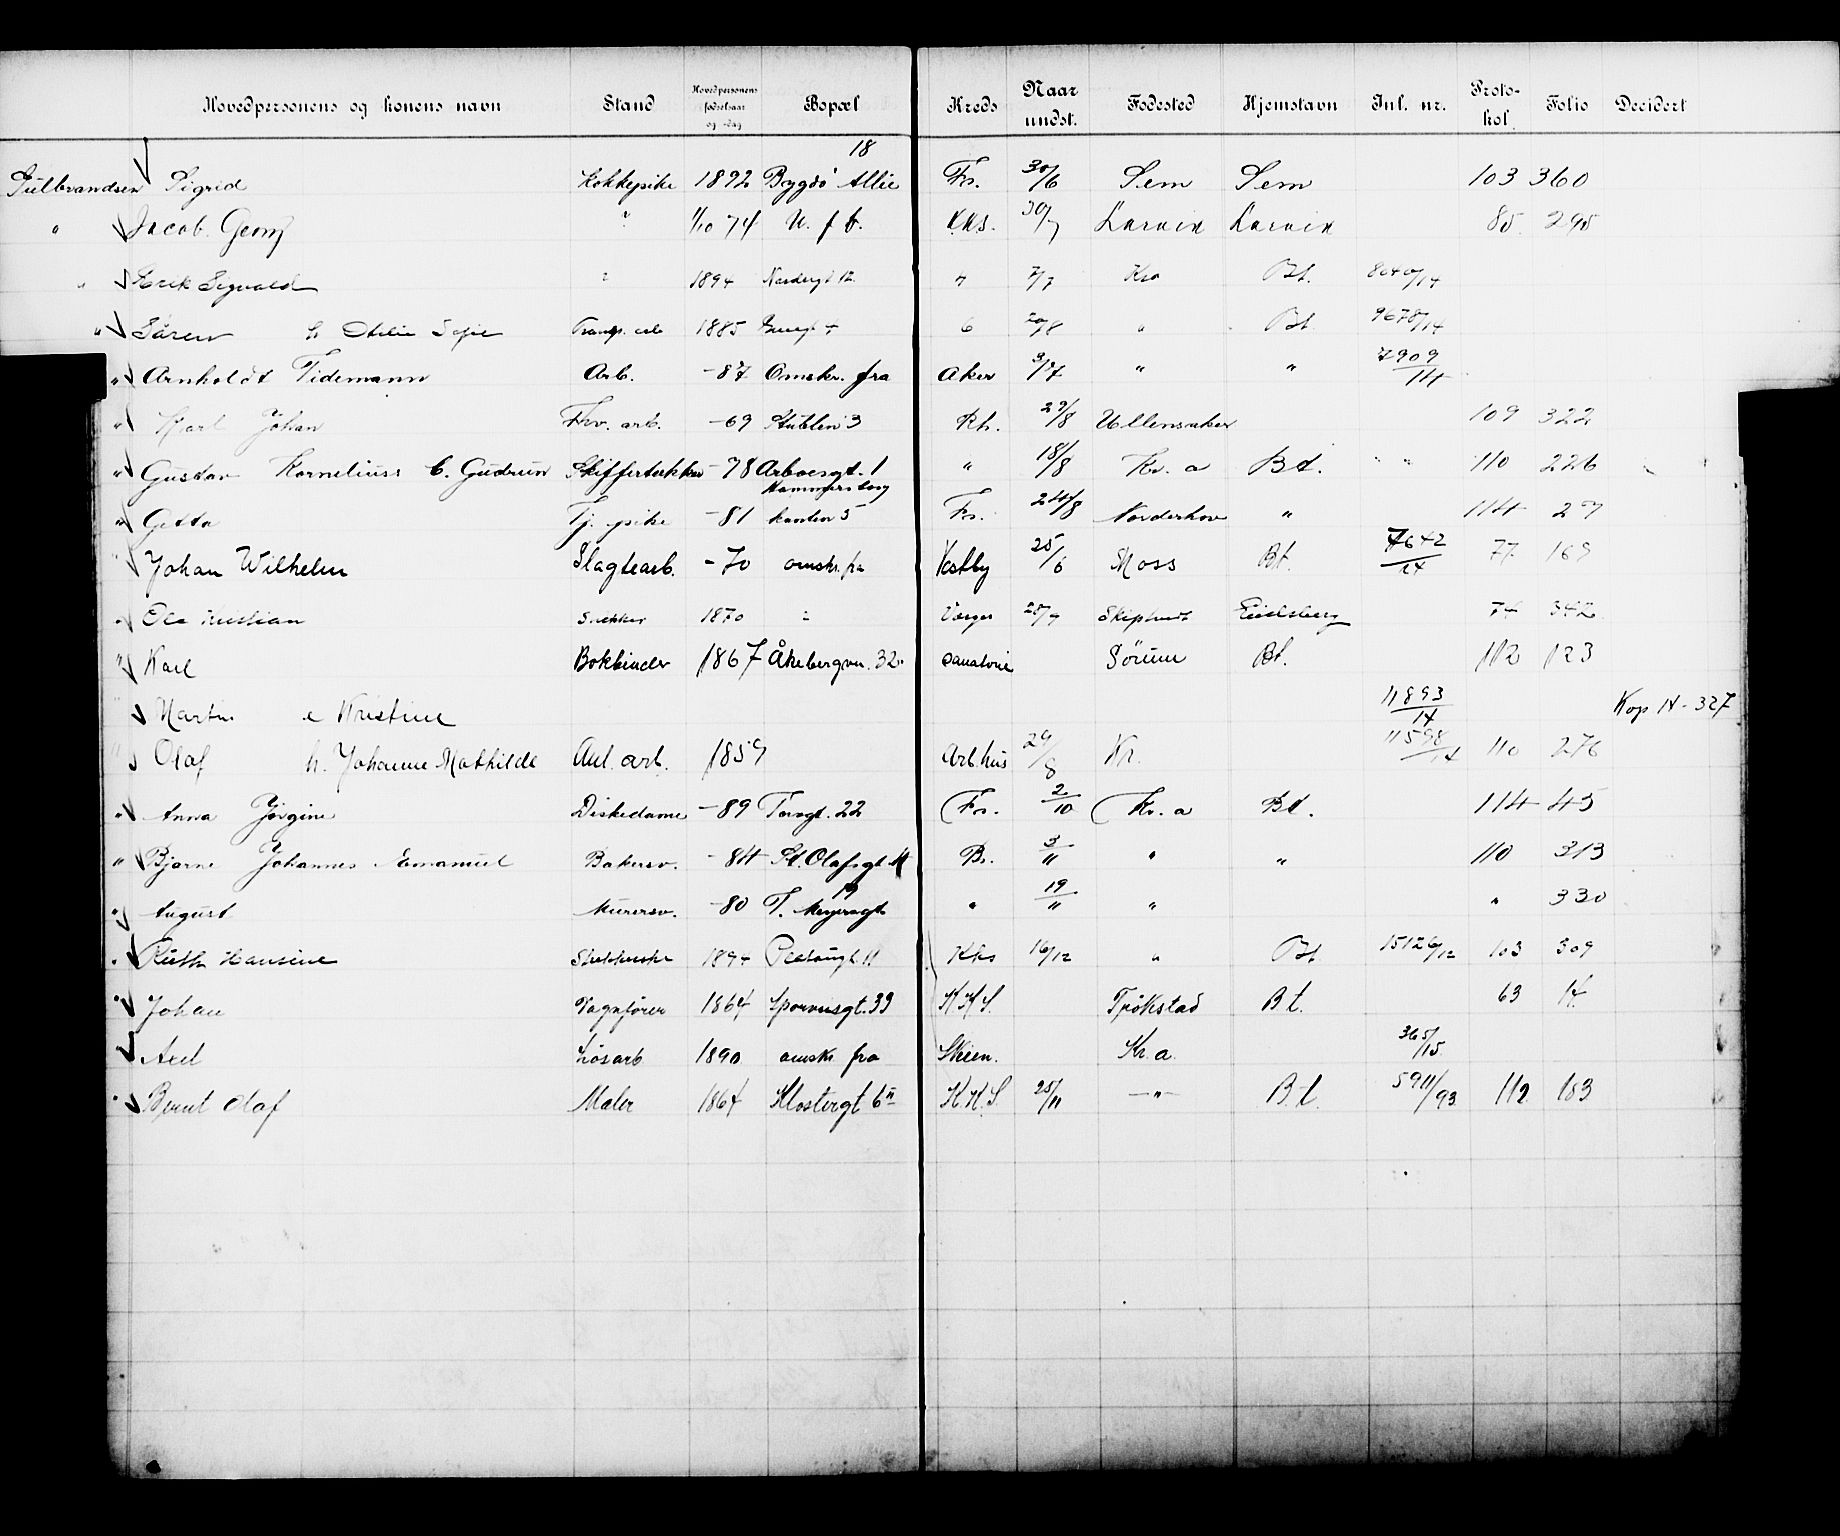 Hovedpersonens og konens navn Stand Hovedpersonens fødselsaar og -dag Bopæl Kreds Naar undst. Fødested Hjemstavn Inl. nr. Proto-kol. Folio Decidert
18
Gulbrandsen Sigrid Kokkepike 1892 Bygdö Allie Fr. 30/6 Sem Sem 103 360
" Jacob Georg " 1/10 74 U. f b. KKS. 30/7 Larvik Larvik 85 295
" Erik Sigvald " 1894 Nordergt 12 " 7/7 Kra Bt. 8040/14
" Sören h. Sofie arb 1885 6 20/8 " Bt 9678/14
" Arnholdt Tidemann Arb. -87 Omskr. fra Aker 3/7 " " 7909/14
" Karl Johan Fhv. arb. -69 3 Rh. 29/8 Ullensaker 109 322
" Gustav Kornelius h. Gudrun Skiffertækker -78 Arboesgt. 1 " 18/8 Kr. a Bt. " " 110 226
" Getta Tj. pike -81 Hammersborg kanten 5 Fr. 24/8 Norderhov " 114 29
" Johan Wilhelm Slagtearb. -70 omskr. fra Vestby 25/6 Moss Bt. 7642/14 77 169
" Ole Kristian Snekker 1870 " Varger 25/9 Skiptvedt Eidsberg 74 342
" Karl Bokbinder 1867 Åkebergvn. 32 Sanatorie Sörum Bt. 112 123
" Martin e Kristine 11893/14 Kop 14-327
" Olaf h. Johanne Mathilde Anl. arb. 1859 Arb.hus 29/8 Kr. 11598/14 110 276
" Anna Jörgine Diskedame -89 Torvgt. 22 Fr. 2/10 Kr. a Bt. 114 45
" Bjarne Johannes Emanuel Bakersv. -84 St. Olafsgt 4 Br. 3/11 " " 110 313
19
" August Murersv. -80 T. Meyersgt " 19/11 " " 330
" Ruth Hansine 1894 11 Kks 16/12 " Bt. 15126/12 103 309
" Johan Vognfører 1864 Sporveisgt. 33 K.K.S. Trökstad Bt. 63 14
" Axel Løsarb 1890 omskr. fra Skien. Kr. a. 365/15
" Bernt Olaf Maler 1864 Klostergt 6 II K.K.S. 25/11 -"- B.t. 5911/93 112 183